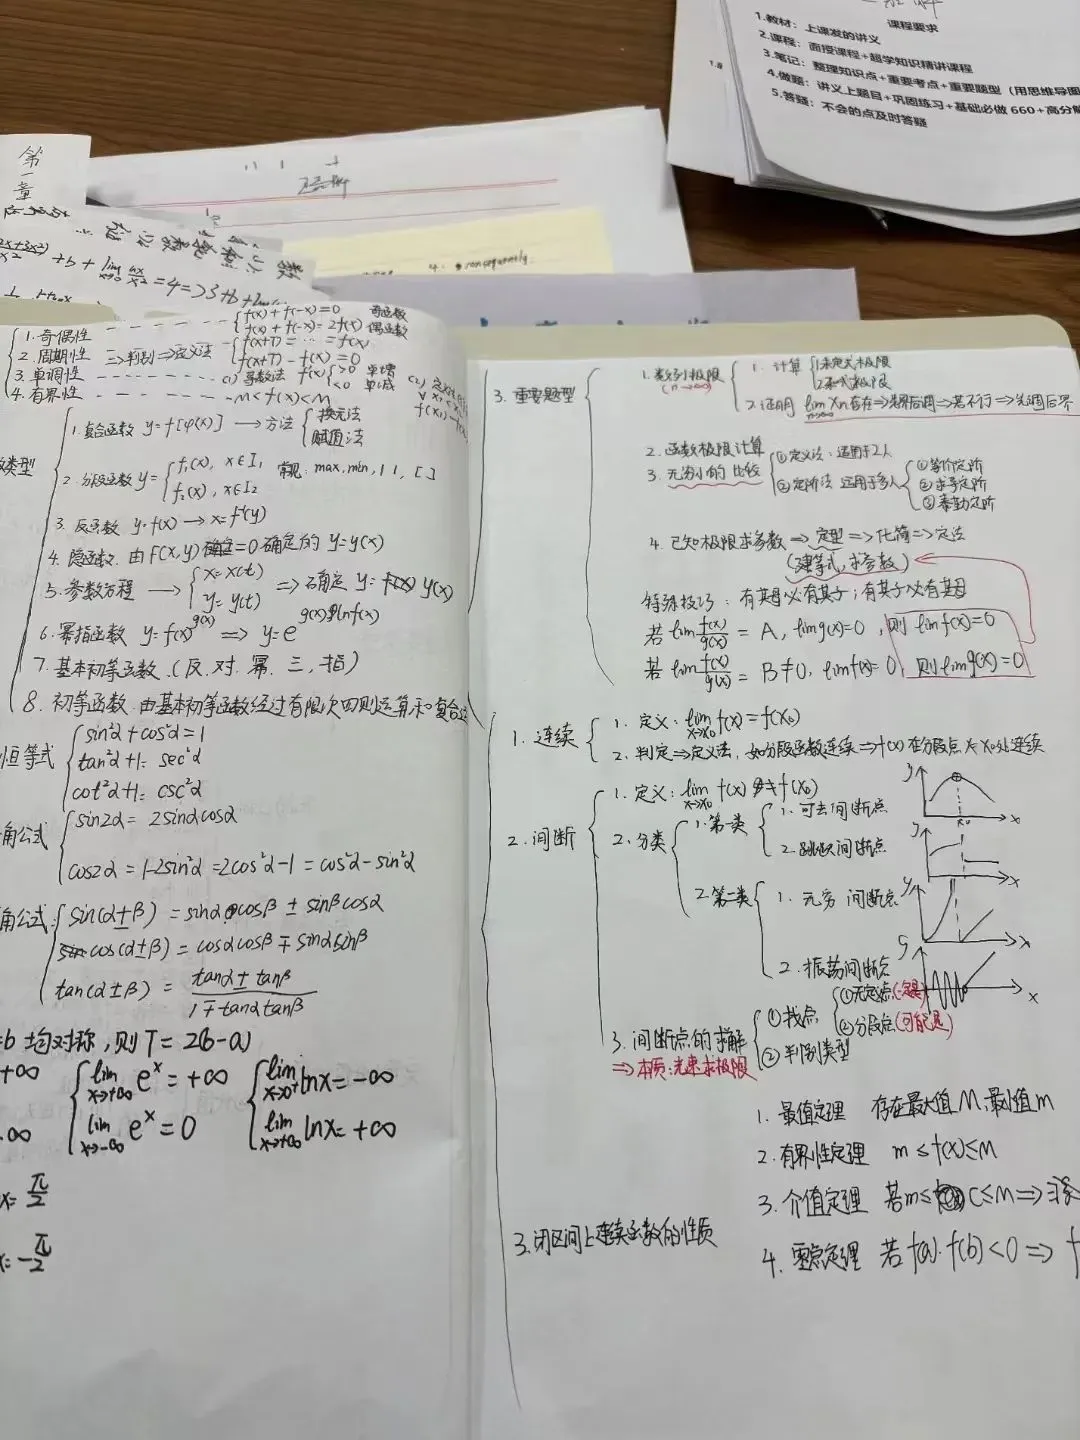 课程要求
1.教材：上课发的讲义
2.课程：面授课程+超学知识精讲课程
3.笔记：整理知识点+重要考点+重要题型（用思维导图
4.做题：讲义上题目+巩固练习+基础必做660+高分
5.答疑：不会的点及时答疑
第一章
4. consequently.
1.奇偶性 f(x)+f(-x)=0 奇函数
f(x)+f(-x)=2f(x) 偶函数
2.周期性 三)判别⇒定义法 f(x+T)=…=f(x)
f(x+T)-f(x)=0
3.单调性 (1)导数法 f'(x) >0 单增
<0 单减
4.有界性 m<f(x)<M
类型
1.复合函数 y=f[φ(x)] → 方法 换元法
赋值法
2.分段函数 y= f₁(x), x∈I₁ 常见: max, min, | |, [ ]
f₂(x), x∈I₂
3.反函数 y=f(x) → x=f⁻¹(y)
4.隐函数 由F(x,y)=0确定的 y=y(x)
5.参数方程 → x=x(t)
y=y(t) ⇒确定 y=y(x)
6.幂指函数 y=f(x)^g(x) ⇒ y=e^g(x)lnf(x)
7.基本初等函数（反.对.幂.三.指）
8.初等函数.由基本初等函数经过有限次四则运算和复合
恒等式 sin²α+cos²α=1
tan²α+1=sec²α
cot²α+1=csc²α
角公式 sin2α=2sinαcosα
cos2α=1-2sin²α=2cos²α-1=cos²α-sin²α
角公式: sin(α±β)=sinαcosβ±sinβcosα
cos(α±β)=cosαcosβ∓sinαsinβ
tan(α±β)= (tanα±tanβ)/(1∓tanαtanβ)
=b 均对称,则T=2(b-a)
+∞ lim x→+∞ eˣ=+∞ lim x→0⁺ lnx=-∞
-∞ lim x→-∞ eˣ=0 lim x→+∞ lnx=+∞
x=π/2
x=-π/2
3.重要题型
1.数列极限 (n→∞) 1.计算 1.未定式极限
2.和式极限
2.证明 lim Xn存在⇒先界后调⇒若不行⇒先调后界
2.函数极限计算
3.无穷小的比较 ①定义法:适用于2个
②定阶法 适用于多个 ①等价定阶
②求导定阶
③泰勒定阶
4.已知极限求参数⇒定型⇒化简⇒定法
(建等式,求参数)
特殊技巧: 有其母必有其子;有其子必有其母
若 lim f(x)/g(x) = A, limg(x)=0, 则 limf(x)=0
若 lim f(x)/g(x) = B≠0, limf(x)=0, 则limg(x)=0
1.连续 1.定义: lim x→x₀ f(x)=f(x₀)
2.判定⇒定义法, 如分段函数连续⇒f(x)在分段点x=x₀处连续
2.间断 1.定义: lim x→x₀ f(x)≠f(x₀)
2.分类 1.第一类 1.可去间断点
2.跳跃间断点
2.第二类 1.无穷间断点
2.振荡间断点
3.间断点的求解 ①找点 ①无定义点(一定是)
②分段点(可能是)
②判别类型
⇒本质:光速求极限
3.闭区间上连续函数的性质
1.最值定理 存在最大值M,最小值m
2.有界性定理 m≤f(x)≤M
3.介值定理 若m≤C≤M⇒
4.零点定理 若f(a)·f(b)<0⇒